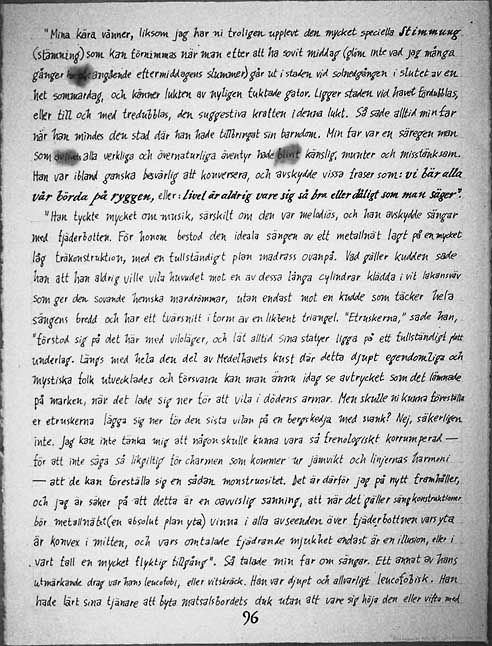 "Mina kära vänner, liksom jag har ni troligen upplevt den mycket speciella Stimmung
(stämning) som kan förnimmas när man efter att ha sovit middag (glöm inte vad jag många
gånger angående eftermiddagens slummer) går ut i staden vid solnedgången i slutet av en
het sommardag, och känner lukten av nyligen fuktade gator. Ligger staden vid havet fördubblas,
eller till och med tredubblas, den suggestiva kraften i denna lukt. Så sade alltid min far
när han mindes den stad där han hade tillbringat sin barndom. Min far var en säregen man
som alla verkliga och övernaturliga äventyr hade blivit känslig, munter och misstänksam.
Han var ibland ganska besvärlig att konversera, och avskydde vissa fraser som: vi bär alla
vår börda på ryggen, eller: livet är aldrig vare sig så bra eller dåligt som man säger".
"Han tyckte mycket om musik, särskilt om den var melodiös, och han avskydde sängar
med fjäderbotten. För honom bestod den ideala sängen av ett metallnät lagt på en mycket
låg träkonstruktion, med en fullständigt plan madrass ovanpå. Vad gäller kudden sade
han att han aldrig ville vila huvudet mot en av dessa långa cylindrar klädda i vit lakansväv
som ger den sovande hemska mardrömmar, utan endast mot en kudde som täcker hela
sängens bredd och har ett tvärsnitt i form av en likbent triangel. "Etruskerna," sade han,
"förstod sig på det här med viloläger, och lät alltid sina statyer ligga på ett fullständigt platt
underlag. Längs med hela den del av Medelhavets kust där detta djupt egendomliga och
mystiska folk utvecklades och försvann kan man ännu idag se avtrycket som det lämnade
på marken, när det lade sig ner för att vila i dödens armar. Men skulle ni kunna föreställa
er etruskerna lägga sig ner för den sista vilan på en bergskedja med svank? Nej, säkerligen
inte. Jag kan inte tänka mig att någon skulle kunna vara så frenologiskt korrumperad —
för att inte säga så likgiltig för charmen som kommer ur jämvikt och linjernas harmoni
— att de kan föreställa sig en sådan monstruositet. Det är därför jag på nytt framhåller,
och jag är säker på att detta är en oavvislig sanning, att när det gäller sängkonstruktioner
bör metallnätet (en absolut plan yta) vinna i alla avseenden över fjäderbottnen vars yta
är konvex i mitten, och vars omtalade fjädrande mjukhet endast är en illusion, eller i
vart fall en mycket flyktig tillgång". Så talade min far om sängar. Ett annat av hans
utmärkande drag var hans leucofobi, eller vitskräck. Han var djupt och allvarligt leucofobisk. Han
hade lärt sina tjänare att byta matsalsbordets duk utan att vare sig höja den eller vifta med
96